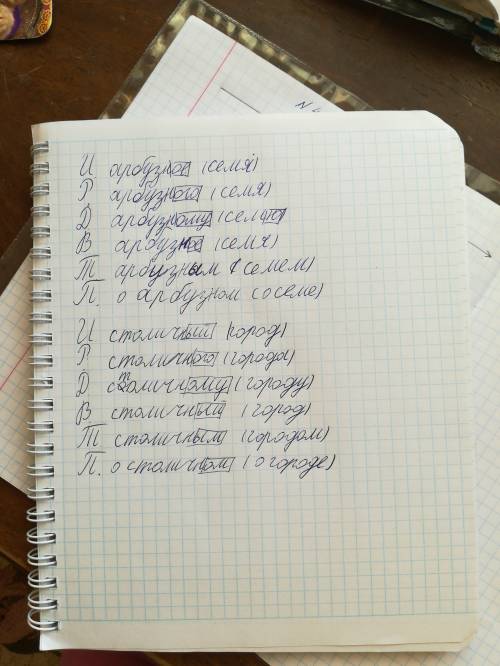 N
И арбузное (семя)
Р. арбузного (семя)
Д арбузному (семени)
В арбузное (семя)
Т арбузным (семем)
П. о арбузном (о семе)
И столичный (город)
Р столичного (города)
Д столичному (городу)
В столичный (город)
Т столичным (городом)
П. о столичном (о городе)